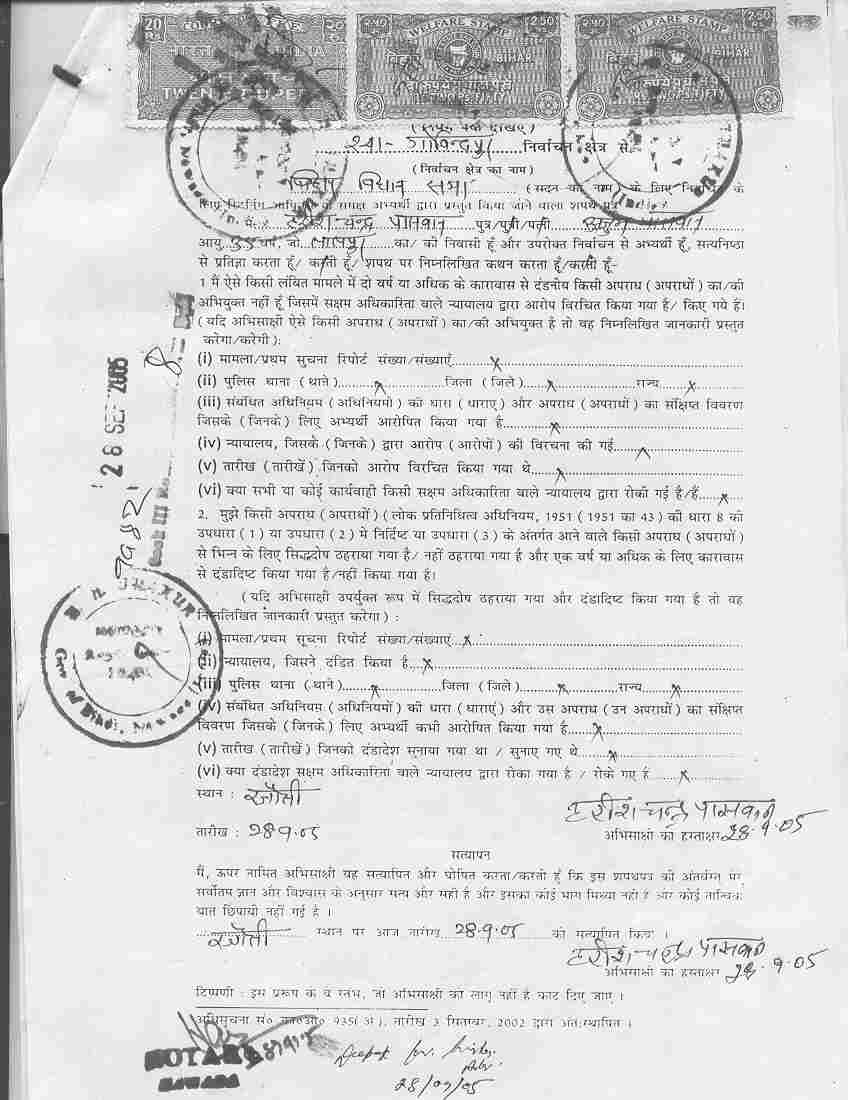 20 Rs
TWENTY RUPEES
2.50 WELFARE STAMP 2.50
BIHAR
2.50 WELFARE STAMP 2.50
BIHAR
निर्वाचन क्षेत्र से
(निर्वाचन क्षेत्र का नाम)
बिहार विधान सभा (सदन का नाम) के लिए
समक्ष अभ्यर्थी द्वारा प्रस्तुत किया जाने वाला शपथ पत्र
मैं चन्द्र पासवान पुत्र/पुत्री/पत्नी पासवान
आयु वर्ष, जो का/ की निवासी हूँ और उपरोक्त निर्वाचन से अभ्यर्थी हूँ, सत्यनिष्ठा
से प्रतिज्ञा करता हूँ/ करती हूँ/ शपथ पर निम्नलिखित कथन करता हूँ/करती हूँ-
1 मैं ऐसे किसी लंबित मामले में दो वर्ष या अधिक के कारावास से दंडनीय किसी अपराध (अपराधों) का/की
अभियुक्त नहीं हूँ जिसमें सक्षम अधिकारिता वाले न्यायालय द्वारा आरोप विरचित किया गया है/ किए गये हैं।
(यदि अभिसाक्षी ऐसे किसी अपराध (अपराधों) का/की अभियुक्त है तो वह निम्नलिखित जानकारी प्रस्तुत
करेगा/करेगी):
(i) मामला/प्रथम सुचना रिपोर्ट संख्या/संख्याएँ x
(ii) पुलिस थाना (थाने) x जिला (जिले) x राज्य x
(iii) संबंधित अधिनियम (अधिनियमों) की धारा (धाराए) और अपराध (अपराधों) का संक्षिप्त विवरण
जिसके (जिनके) लिए अभ्यर्थी आरोपित किया गया है x
(iv) न्यायालय, जिसके (जिनके) द्वारा आरोप (आरोपों) की विरचना की गई x
(v) तारीख (तारीखें) जिनको आरोप विरचित किया गया थे x
(vi) क्या सभी या कोई कार्यवाही किसी सक्षम अधिकारिता वाले न्यायालय द्वारा रोकी गई है/हैं x
2. मुझे किसी अपराध (अपराधों) (लोक प्रतिनिधित्व अधिनियम, 1951 (1951 का 43) की धारा 8 की
उपधारा (1) या उपधारा (2) में निर्दिष्ट या उपधारा (3) के अंतर्गत आने वाले किसी अपराध (अपराधों)
से भिन्न के लिए सिद्धदोष ठहराया गया है/ नहीं ठहराया गया है और एक वर्ष या अधिक के लिए कारावास
से दंडादिष्ट किया गया है/नहीं किया गया है।
(यदि अभिसाक्षी उपर्युक्त रूप में सिद्धदोष ठहराया गया और दंडादिष्ट किया गया है तो वह
निम्नलिखित जानकारी प्रस्तुत करेगा) :
(i) मामला/प्रथम सुचना रिपोर्ट संख्या/संख्याएं x
(ii) न्यायालय, जिसने दंडित किया है x
(iii) पुलिस थाना (थाने) x जिला (जिले) x राज्य x
(iv) संबंधित अधिनियम (अधिनियमों) की धारा (धाराएं) और उस अपराध (उन अपराधों) का संक्षिप्त
विवरण जिसके (जिनके) लिए अभ्यर्थी कभी आरोपित किया गया है x
(v) तारीख (तारीखें) जिनको दंडादेश सुनाया गया था / सुनाए गए थे x
(vi) क्या दंडादेश सक्षम अधिकारिता वाले न्यायालय द्वारा रोका गया है / रोके गए हैं x
स्थान : रजौली
हरीश चन्द्र पासवान
तारीख : 28.9.05
अभिसाक्षी का हस्ताक्षर 28.9.05
सत्यापन
मैं, ऊपर नामित अभिसाक्षी यह सत्यापित और घोषित करता/करती हूँ कि इस शपथपत्र की अंतर्वस्तु मेरे
सर्वोतम ज्ञान और विश्वास के अनुसार सत्य और सही है और इसका कोई भाग मिथ्या नहीं है और कोई तात्विक
बात छिपायी नहीं गई है ।
रजौली स्थान पर आज तारीख 28.9.05 को सत्यापित किया ।
हरीश चन्द्र पासवान
अभिसाक्षी का हस्ताक्षर 28.9.05
टिप्पणी : इस प्ररूप के वे स्तंभ, जो अभिसाक्षी को लागु नहीं है काट दिए जाए ।
अधिसूचना सं० का०आ० 935(अ), तारीख 3 सितम्बर, 2002 द्वारा अंतःस्थापित ।
NOTARY
NAWADA
28/09/05
28 SEP 2005
Book III No.